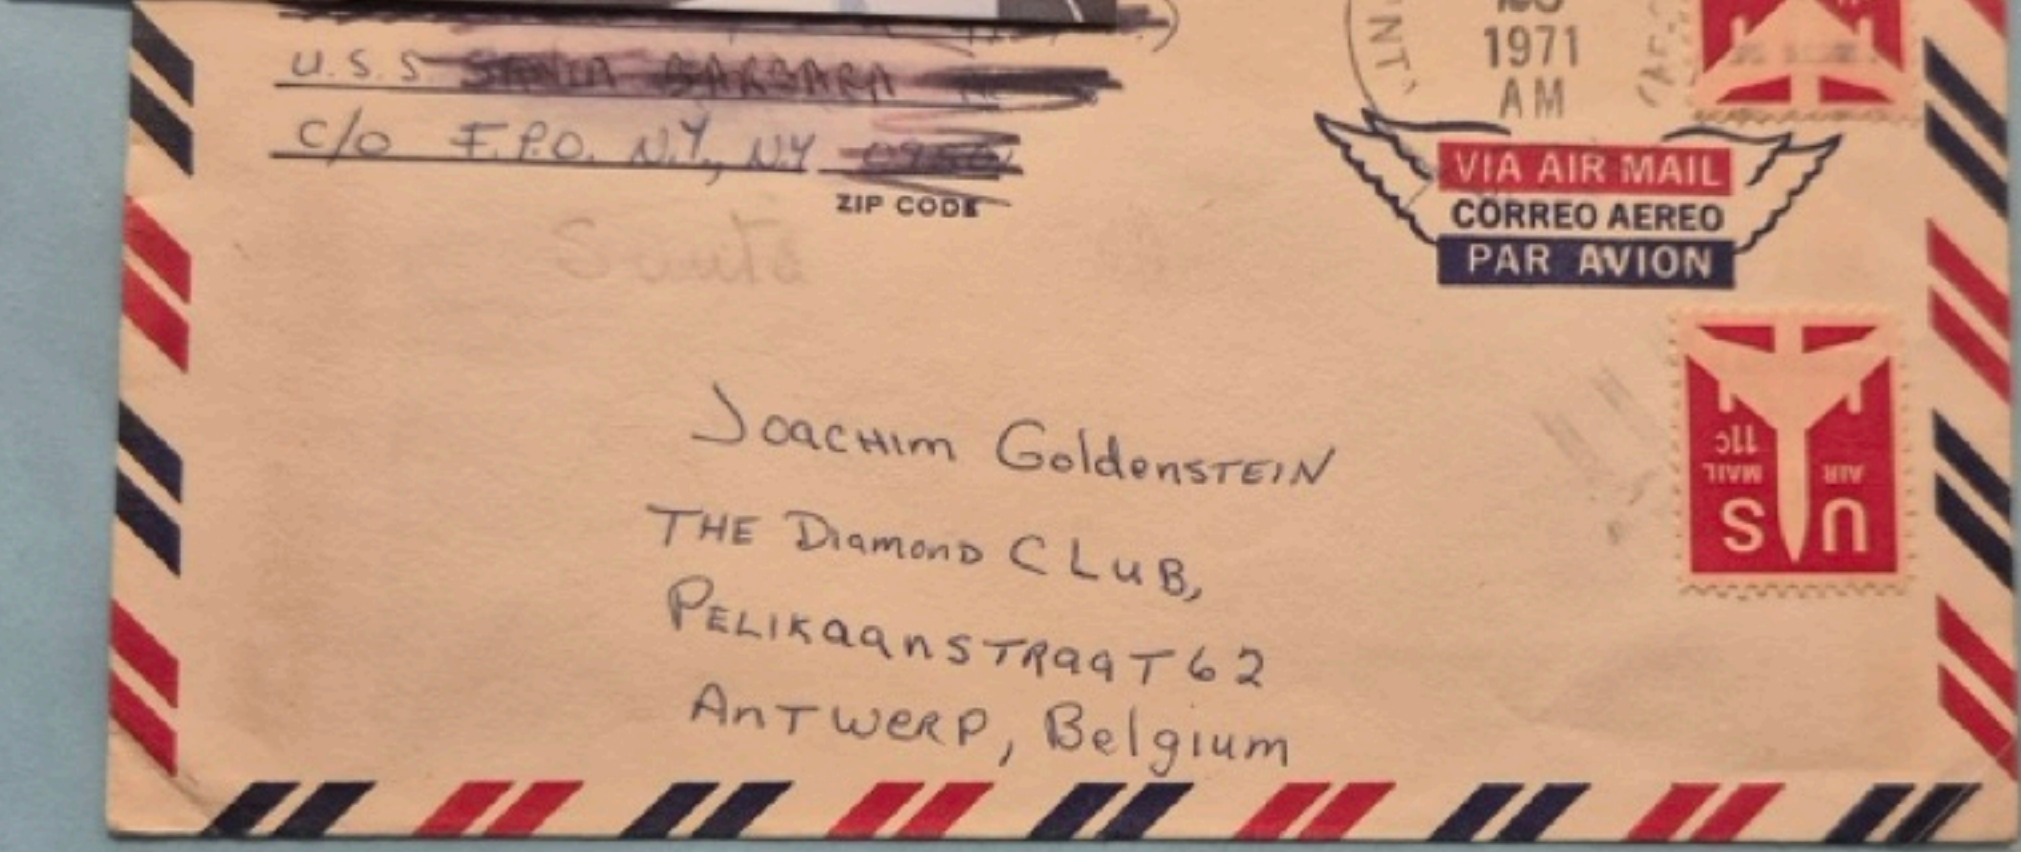 U.S.S. SANTA BARBARA
C/O F.P.O. N.Y., N.Y.
ZIP CODE
Santa
1971
AM
VIA AIR MAIL
CORREO AEREO
PAR AVION
Joachim Goldenstein
THE Diamond CLUB,
PELIKaanSTRaaT 62
AnTwerp, Belgium
US
AIR MAIL
11c